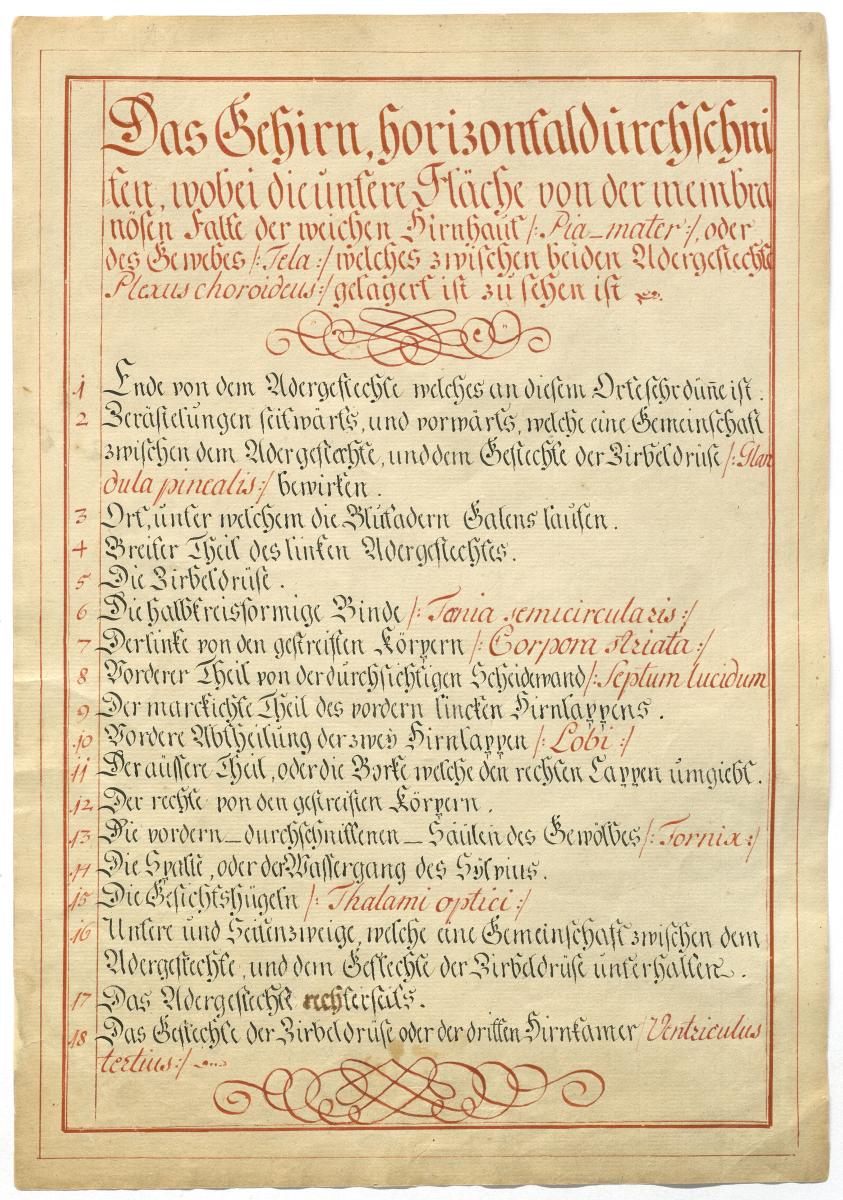 Das Gehirn, horizontaldurchschni
ten, wobei die untere Fläche von der membra
nösen Falte der weichen Hirnhaut /: Pia_mater :/, oder
des Gewebes /: Tela :/ welches zwischen beiden Adergeflechte
Plexus choroideus :/ gelagert ist zu sehen ist
1 Ende von dem Adergeflechte welches an diesem Orte sehr dün̄e ist.
2 Zerästelungen seitwärts, und vorwärts, welche eine Gemeinschaft
zwischen dem Adergeflechte, und dem Geflechte der Zirbeldrüse /: Glan
dula pinealis :/ bewirken.
3 Ort, unter welchem die Blutadern Galens laufen.
4 Breiter Theil des linken Adergeflechtes.
5 Die Zirbeldrüse.
6 Die halbkreisformige Binde /: Tænia semicircularis :/
7 Der linke von den gestreiften Körpern /: Corpora striata :/
8 Vorderer Theil von der durchsichtigen Scheidewand /: Septum lucidum
9 Der marckichte Theil des vordern lincken Hirnlappens.
10 Vordere Abtheilung der zweÿ Hirnlappen /: Lobi :/
11 Der äussere Theil, oder die Borke welche den rechten Lappen umgiebt.
12 Der rechte von den gestreiften Körpern.
13 Die vordern_durchschnittenen_Säulen des Gewölbes /: Fornix :/
14 Die Spalte, oder der Wassergang des Sÿlvius.
15 Die Gesichtshügeln /: Thalami optici :/
16 Untere und Seitenzweige, welche eine Gemeinschaft zwischen dem
Adergeflechte, und dem Geflechte der Zirbeldrüse unterhalten.
17 Das Adergeflecht rechterseits.
18 Das Geflechte der Zirbeldrüse oder der dritten Hirnkamer /Ventriculus
tertius :/